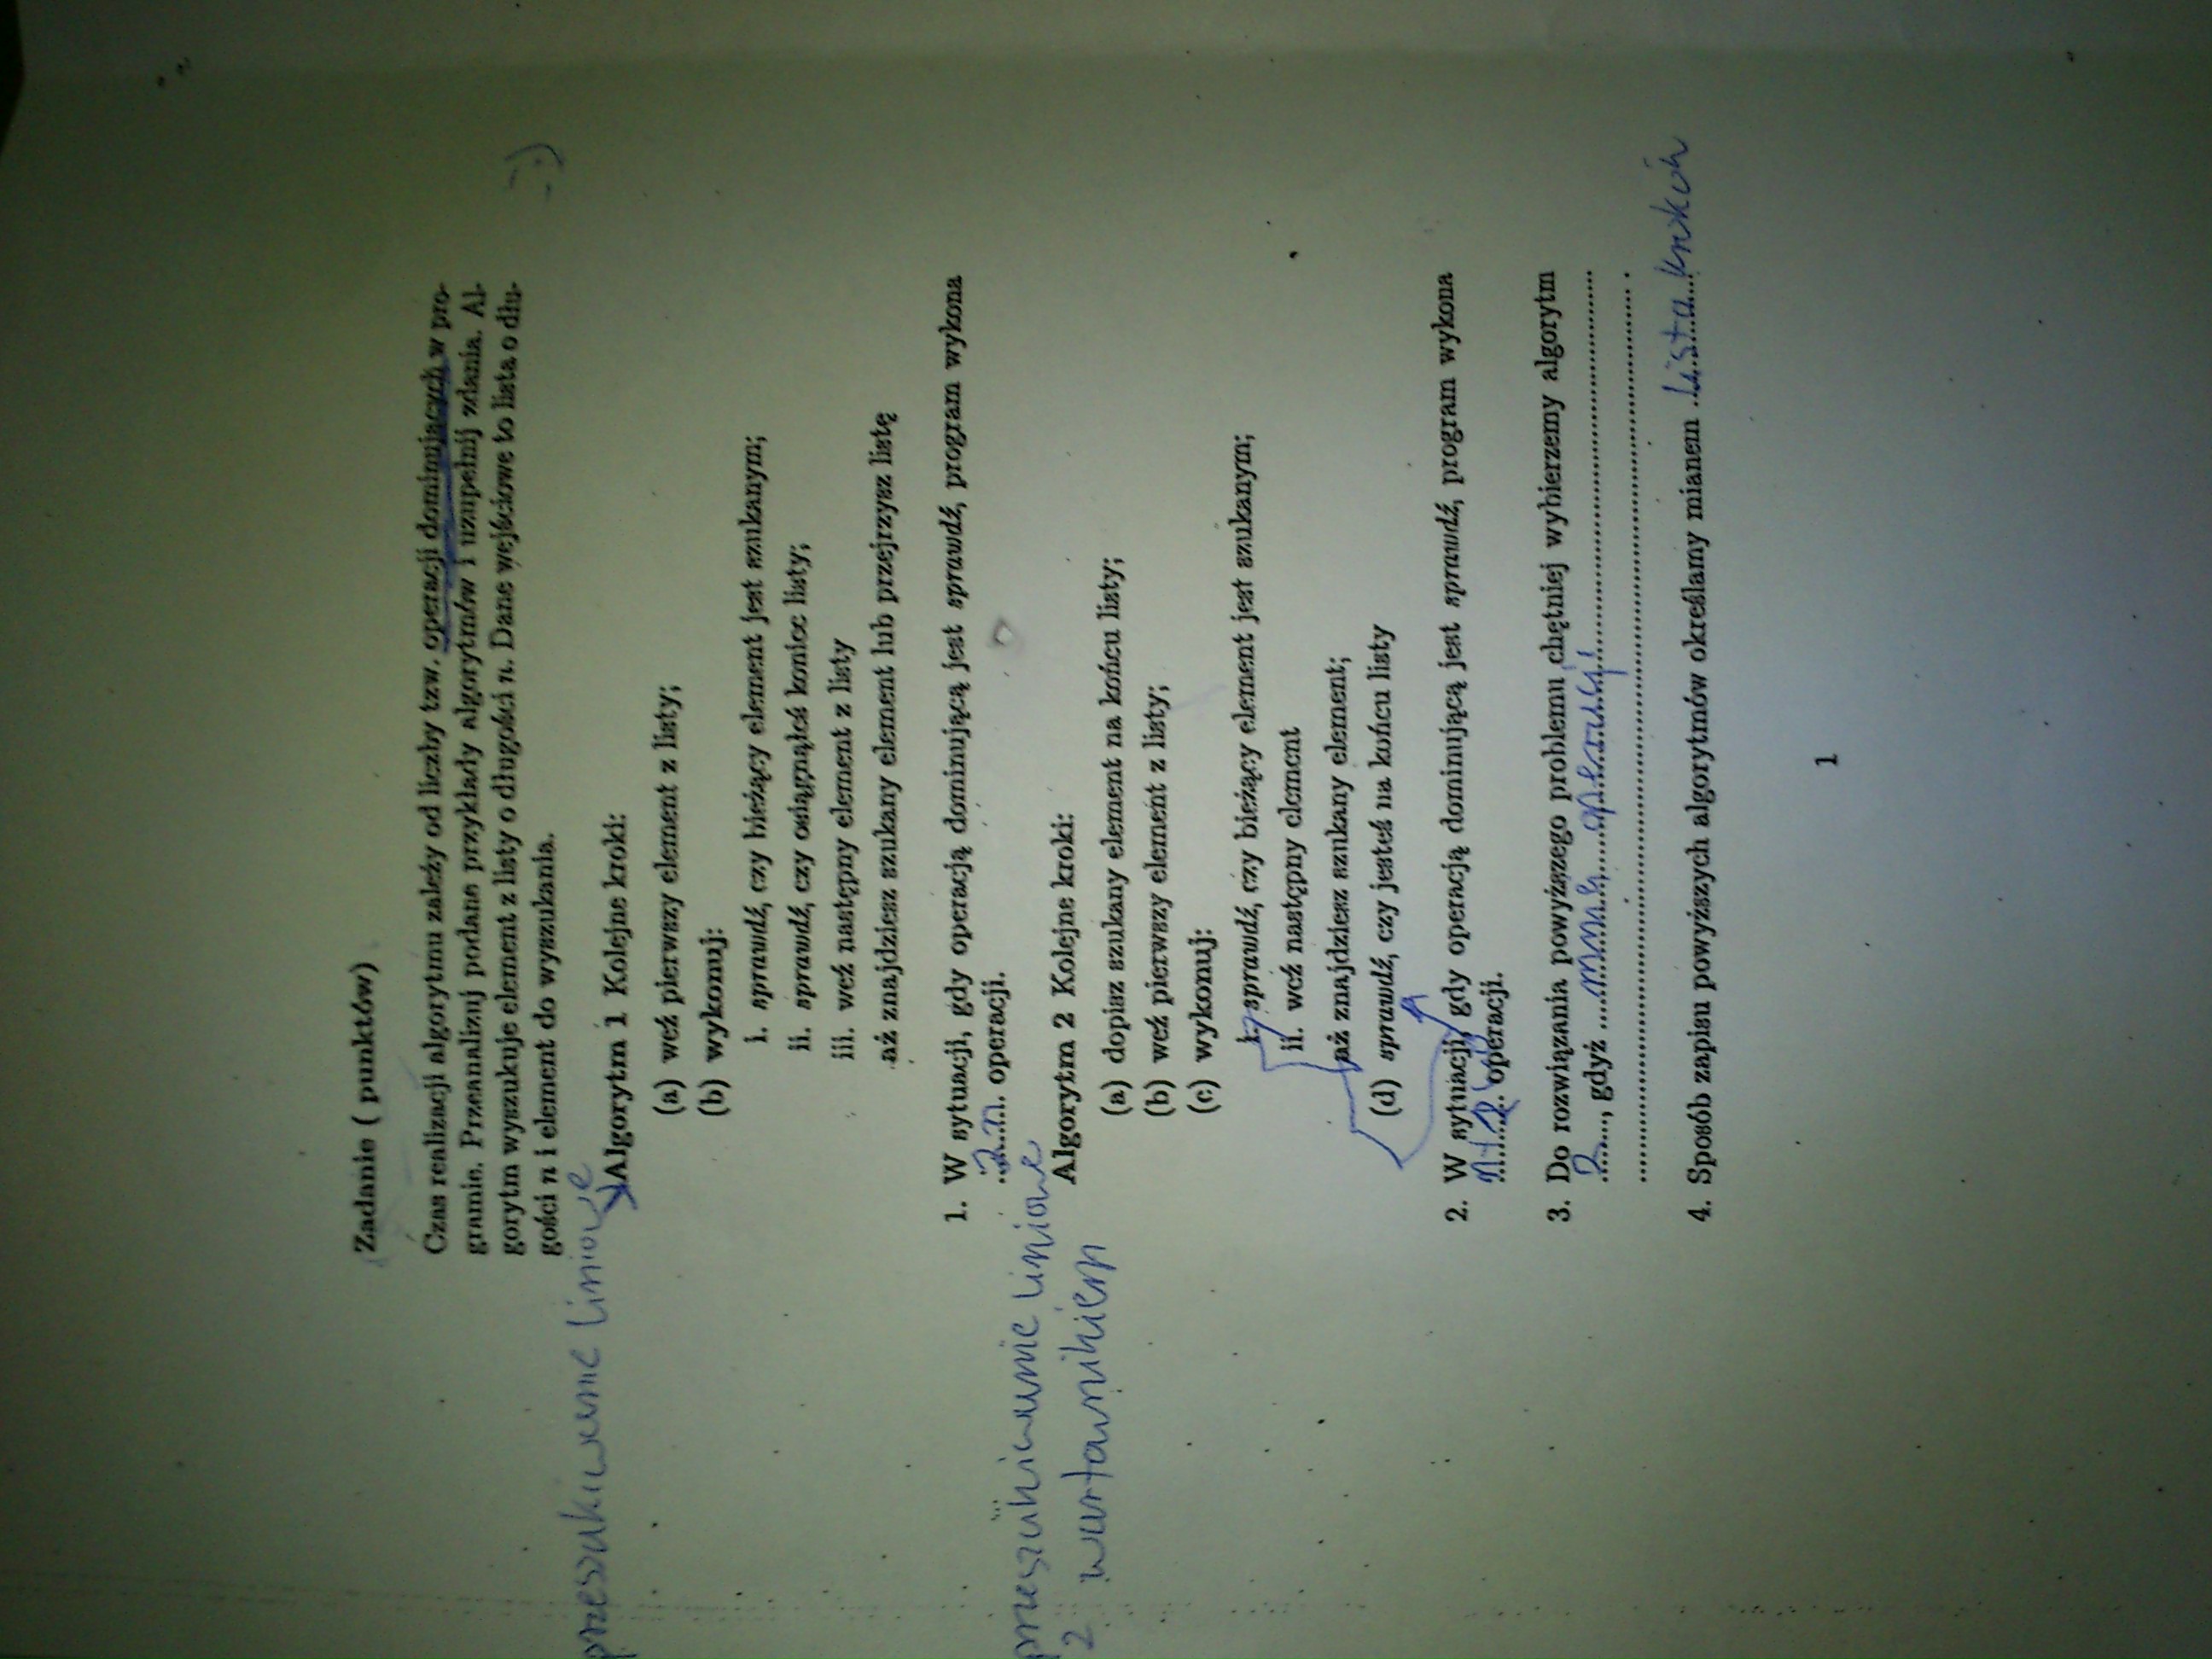 Zadanie ( punktów)
Czas realizacji algorytmu zależy od liczby tzw. operacji dominujących w pro-
gramie. Przeanalizuj podane przykłady algorytmów i uzupełnij zdania. Al-
gorytm wyszukuje element z listy o długości n. Dane wejściowe to lista o dłu-
gości n i element do wyszukania.
:)
przeszukiwanie liniowe
Algorytm 1 Kolejne kroki:
(a) weź pierwszy element z listy;
(b) wykonuj:
i. sprawdź, czy bieżący element jest szukanym;
ii. sprawdź, czy osiągnąłeś koniec listy;
iii. weź następny element z listy
aż znajdziesz szukany element lub przejrzysz listę
1. W sytuacji, gdy operacją dominującą jest sprawdź, program wykona
..2n.... operacji.
przeszukiwanie liniowe
z wartownikiem
Algorytm 2 Kolejne kroki:
(a) dopisz szukany element na końcu listy;
(b) weź pierwszy element z listy;
(c) wykonuj:
i. sprawdź, czy bieżący element jest szukanym;
ii. weź następny element
aż znajdziesz szukany element;
(d) sprawdź, czy jesteś na końcu listy
2. W sytuacji, gdy operacją dominującą jest sprawdź, program wykona
operacji.
3. Do rozwiązania powyższego problemu chętniej wybierzemy algorytm
..2...., gdyż ..... mniej operacji
4. Sposób zapisu powyższych algorytmów określamy mianem Lista kroków
1